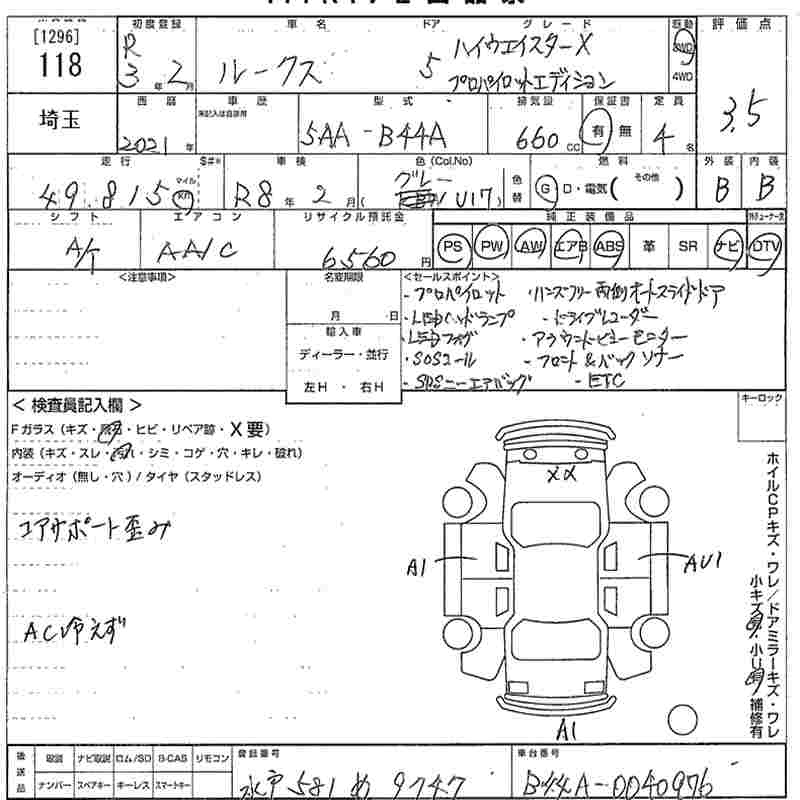 [1296]
118
初度登録
車名
ドア
グレード
駆動
評価点
R
3年2月
ルークス
5
ハイウェイスターX
プロパイロットエディション
2WD
4WD
3.5
埼玉
西暦
車歴
型式
排気量
保証書
定員
2021年
未記入は自家用
5AA-B44A
660cc
有 無
4名
走行
車検
色(Col.No)
色替
燃料
外装
内装
49,815
マイル
km
R8年2月
グレー
U17
G・D・電気(その他)
B
B
シフト
エアコン
リサイクル預託金
純正装備品
A/T
AA/C
6,560円
PS PW AW エアB ABS 革 SR ナビ DTV
<注意事項>
名変期限
月 日
輸入車
ディーラー・並行
左H・右H
<セールスポイント>
・プロパイロット ・ハンズフリー両側オートスライドドア
・LEDヘッドランプ ・ドライブレコーダー
・LEDフォグ ・アラウンドビューモニター
・SOSコール ・フロント&バックソナー
・SRSニーエアバッグ ・ETC
<検査員記入欄>
キーロック
Fガラス(キズ・飛石・ヒビ・リペア跡・X要)
内装(キズ・スレ・汚れ・シミ・コゲ・穴・キレ・破れ)
オーディオ(無し・穴)/タイヤ(スタッドレス)
コアサポート歪み
AC冷えず
XX
A1
AU1
A1
ホイルCPキズ・ワレ/ドアミラーキズ・ワレ
小キズ有・小U有 補修有
後送品
取説
ナビ取説
ロム/SD
B-CAS
リモコン
ナンバー
スペアキー
キーレス
スマートキー
登録番号
水戸 581 め 9747
車台番号
B44A-0040976